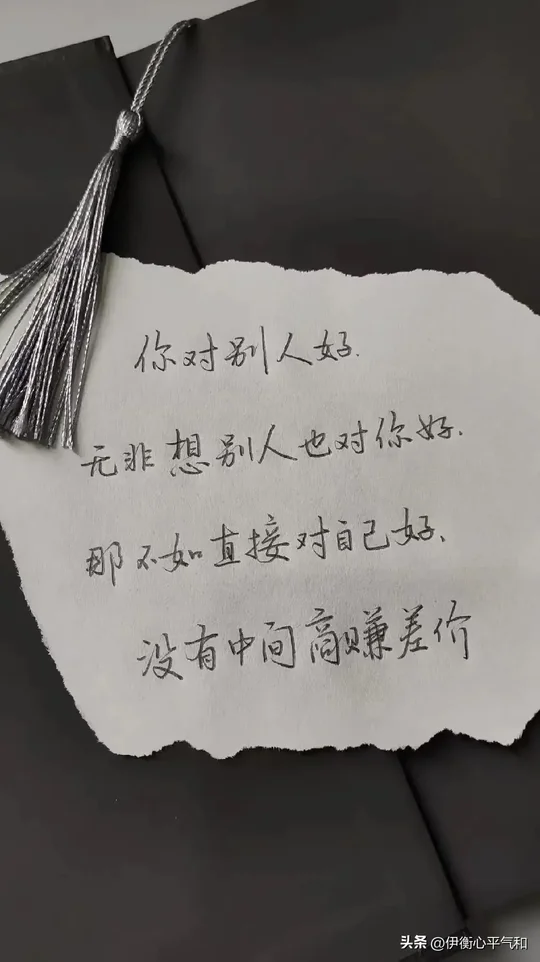 你对别人好.
无非想别人也对你好.
那不如直接对自己好、
没有中间商赚差价
头条 @伊衡心平气和